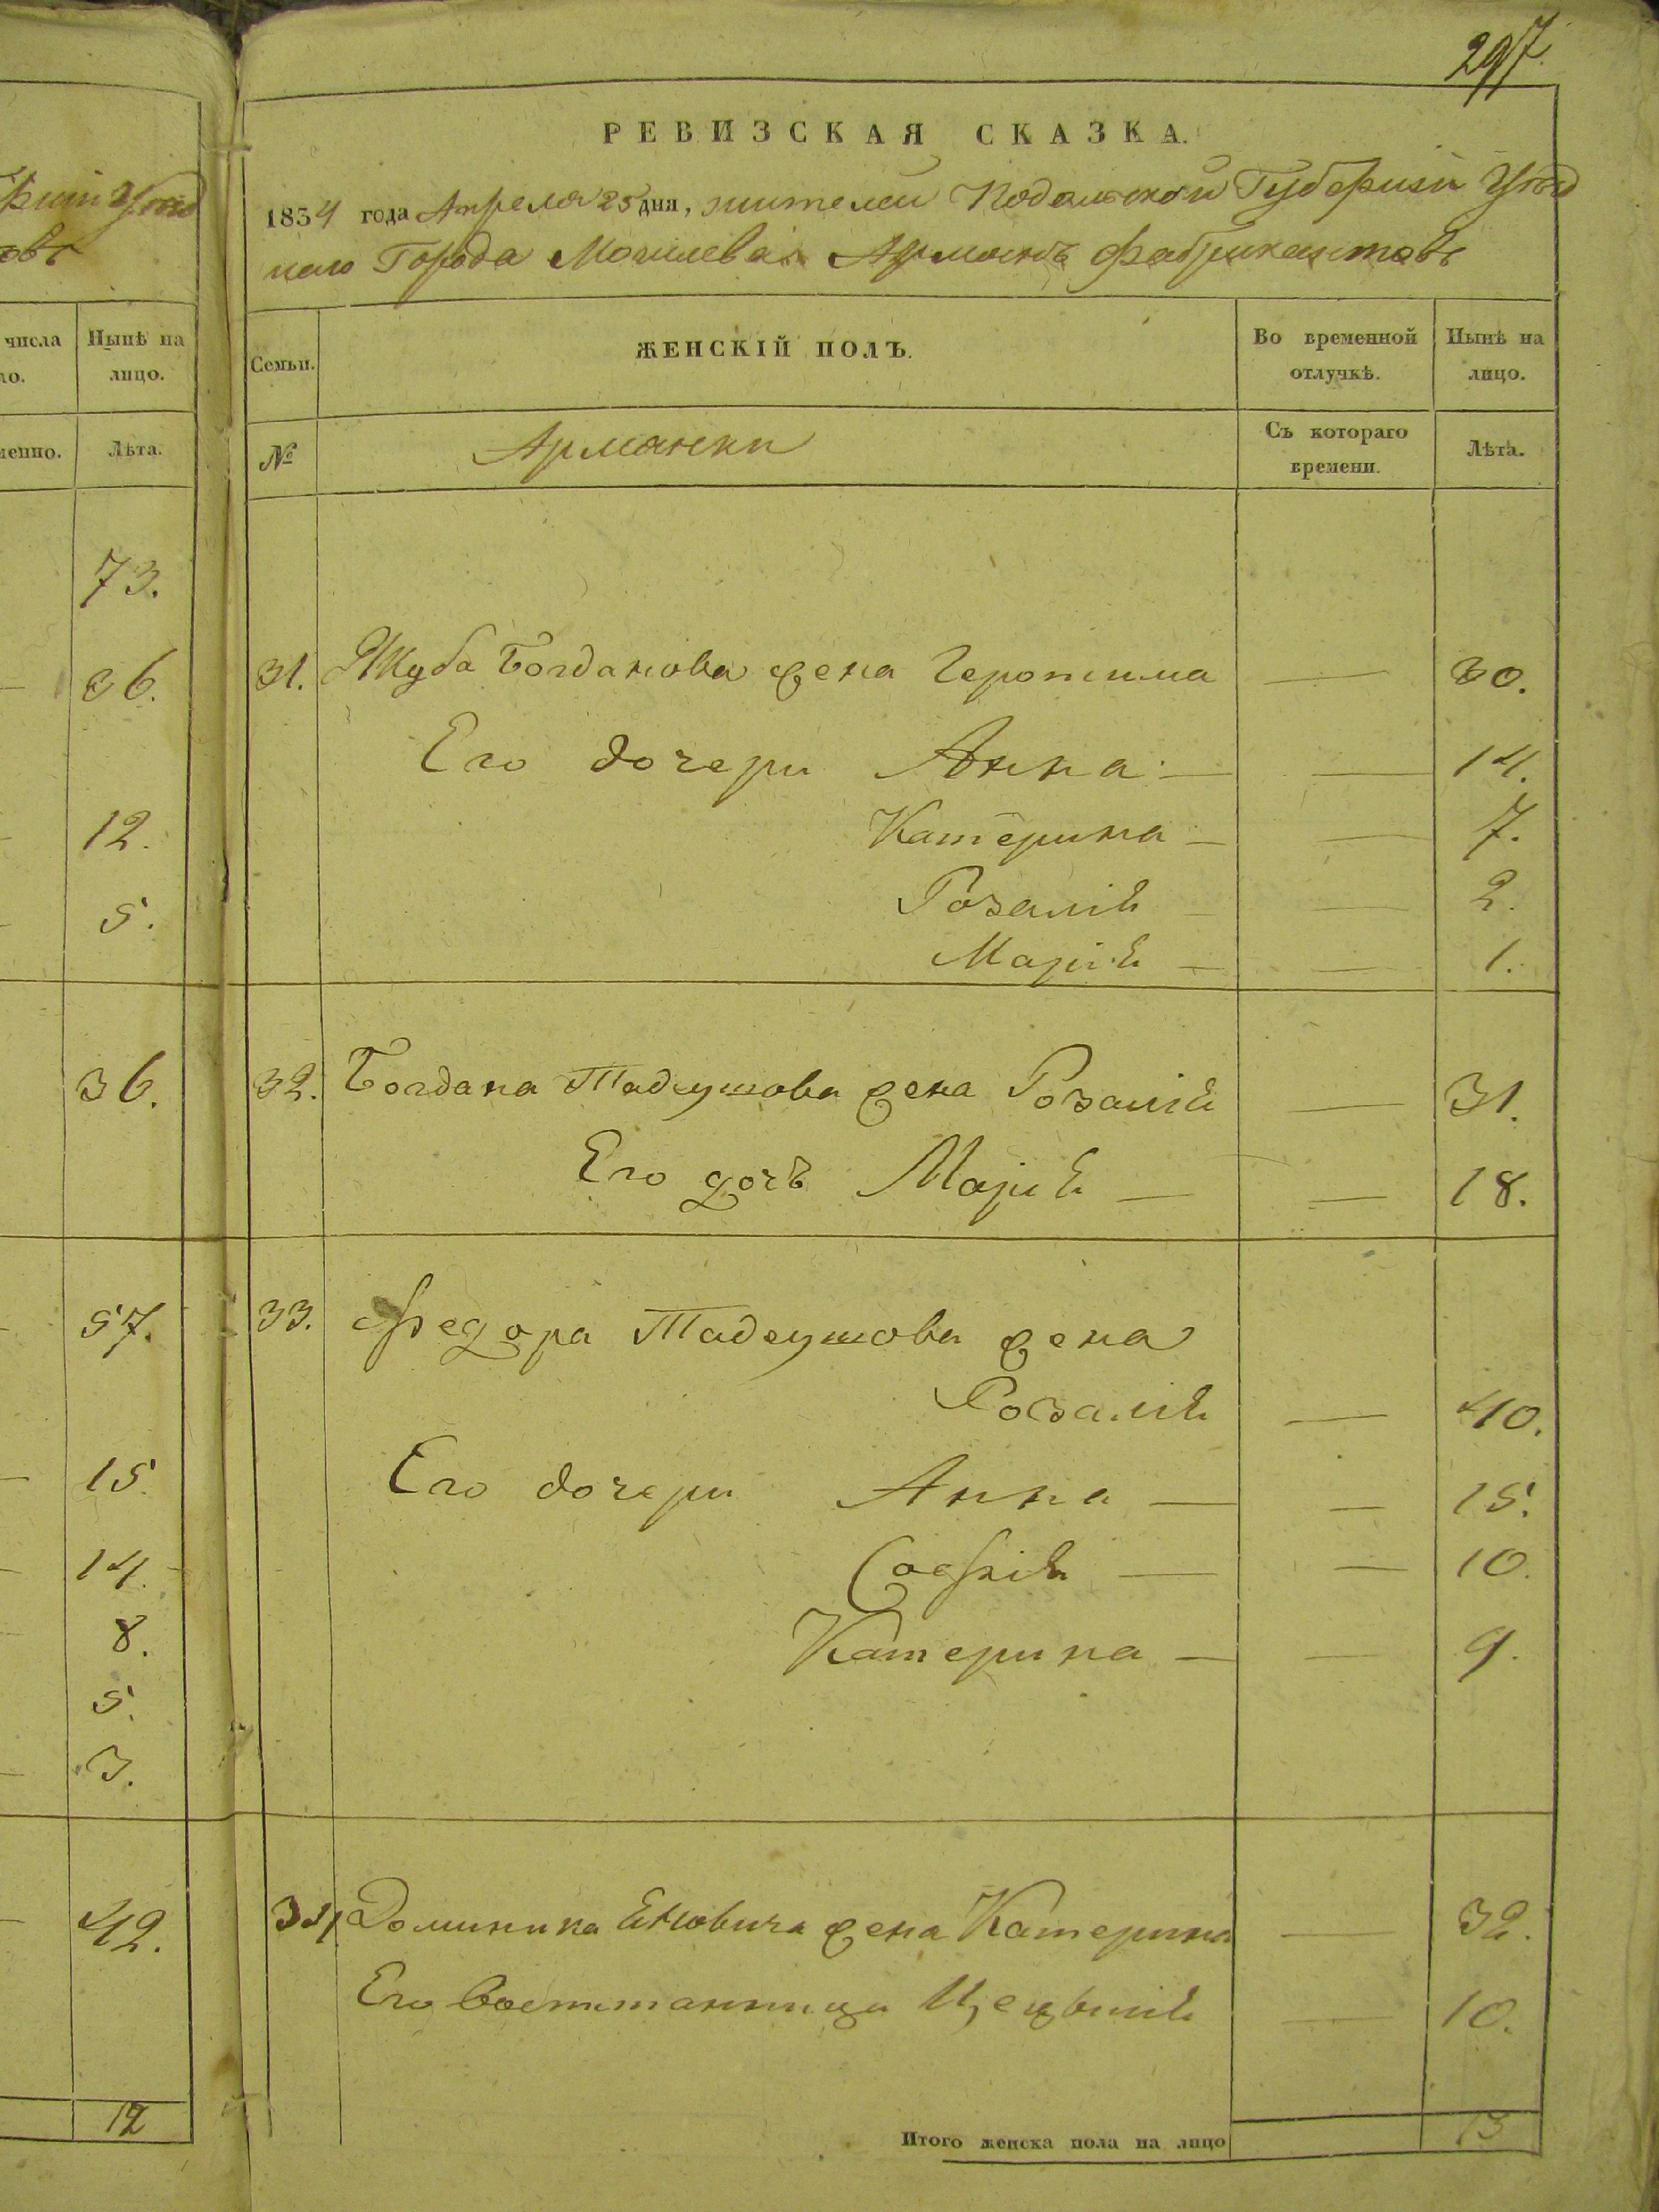 297
РЕВИЗСКАЯ СКАЗКА.
1834 года Апреля 25 дня, жителей Подольской Губернии Уезд
наго Города Могилева Армянъ Фабрикантовъ
Семьи.
ЖЕНСКІЙ ПОЛЪ.
Во временной отлучкѣ.
Нынѣ на лицо.
№
Армянки
Съ котораго времени.
Лѣта.
31. Якуба Богданова жена Геронима — 30.
Его дочери Анна — — 14.
Катерина — — 7.
Розалія — — 2.
Марія — — 1.
32. Богдана Тадеушова жена Розалія — 31.
Его дочь Марія — — 18.
33. Федора Тадеушова жена
Розалія — 40.
Его дочери Анна — — 15.
Софія — — 10.
Катерина — — 9.
34 Доминика жена Катерина — 32.
Его Цецылія — 10.
Итого женска пола на лицо 13
числа
Нынѣ на
лицо.
Лѣта.
73.
36.
12.
5.
36.
57.
15.
14.
8.
5.
3.
42.
12